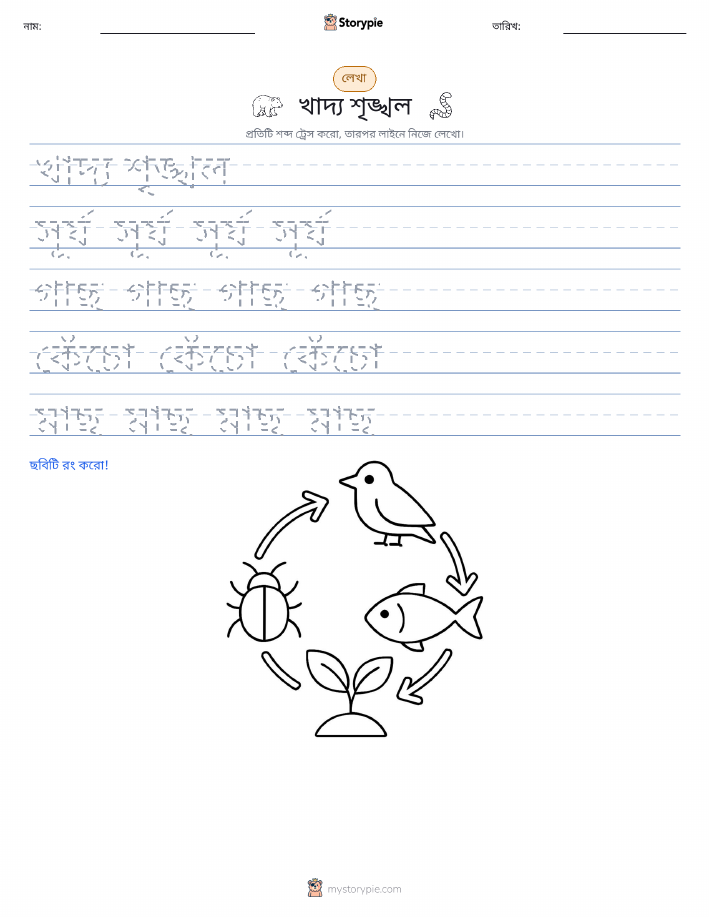 নাম:
Storypie
তারিখ:
লেখা
খাদ্য শৃঙ্খল
প্রতিটি শব্দ ট্রেস করো, তারপর লাইনে নিজে লেখো।
খাদ্য শৃঙ্খল
সূর্য সূর্য সূর্য সূর্য
গাছ গাছ গাছ গাছ
কেঁচো কেঁচো কেঁচো
মাছ মাছ মাছ মাছ
ছবিটি রং করো!
mystorypie.com